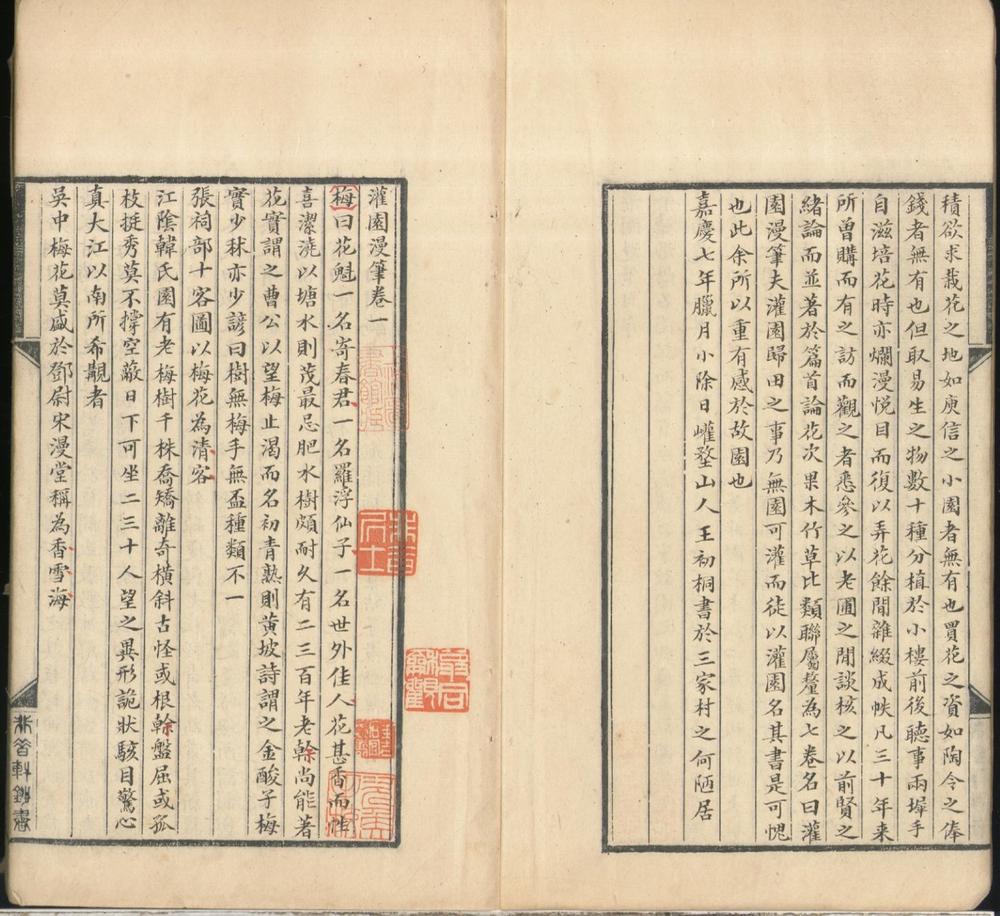 積欲求栽花之地如庾信之小園者無有也買花之資如陶令之俸
錢者無有也但取易生之物數十種分植於小樓前後聽事兩墀手
自滋培花時亦爛漫悅目而復以弄花餘閒雜綴成帙凡三十年來
所曾購而有之訪而觀之者悉參之以老圃之閒談核之以前賢之
緒論而並著於篇首論花次果木竹草比類聯屬釐為七卷名曰灌
園漫筆夫灌園歸田之事乃無園可灌而徒以灌園名其書是可愧
也此余所以重有感於故園也
嘉慶七年臘月小除日巏堥山人王初桐書於三家村之何陋居
灌園漫筆卷一
梅曰花魁一名寄春君一名羅浮仙子一名世外佳人花甚香而性
喜潔澆以塘水則茂最忌肥水樹頗耐久有二三百年老幹尚能著
花實謂之曹公以望梅止渴而名初青熟則黃坡詩謂之金酸子梅
實少秫亦少諺曰樹無梅手無盃種類不一
張祠部十客圖以梅花為清客
江陰韓氏園有老梅樹千株喬矯離奇橫斜古怪或根幹盤屈或孤
枝挺秀莫不撐空蔽日下可坐二三十人望之異形詭狀駭目驚心
真大江以南所希覯者
吳中梅花莫盛於鄧尉宋漫堂稱為香雪海